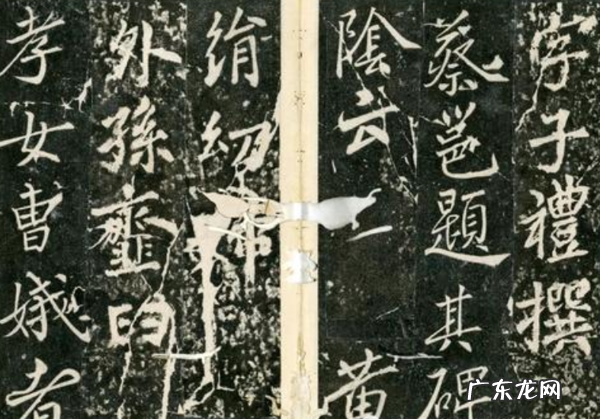 字子禮撰
蔡邕題其碑
陰云黄
絹幼婦
外孫齏臼
孝女曹娥者
广东龙网